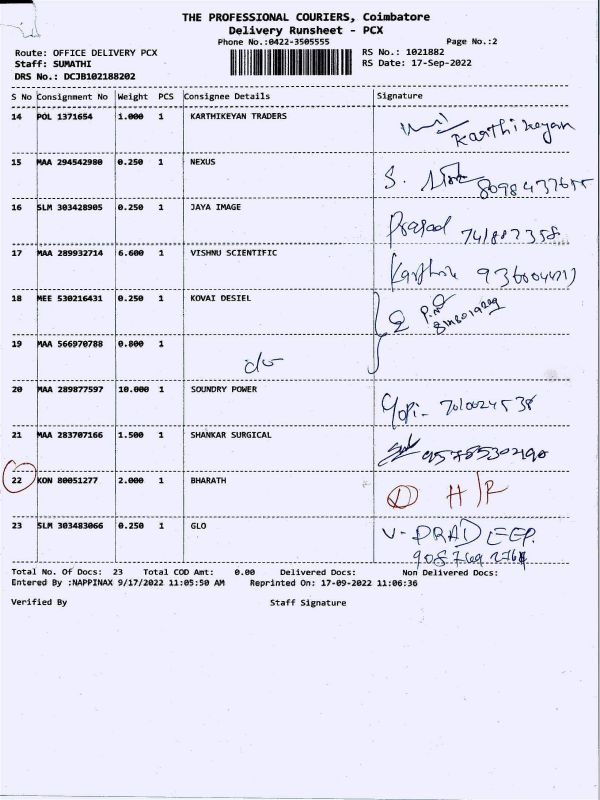 THE PROFESSIONAL COURIERS, Coimbatore
Delivery Runsheet - PCX
Phone No.:0422-3505555
Page No.:2
Route: OFFICE DELIVERY PCX
RS No.: 1021882
Staff: SUMATHI
RS Date: 17-Sep-2022
DRS No.: DCJB102188202
S No Consignment No Weight PCS Consignee Details Signature
14 POL 1371654 1.000 1 KARTHIKEYAN TRADERS
Karthikeyan
15 MAA 294542980 0.250 1 NEXUS
S.
16 SLM 303428905 0.250 1 JAYA IMAGE
Prasad
17 MAA 289932714 6.600 1 VISHNU SCIENTIFIC
18 MEE 530216431 0.250 1 KOVAI DESIEL
19 MAA 566970788 0.800 1
20 MAA 289877597 10.000 1 SOUNDRY POWER
Gopi-
21 MAA 283707166 1.500 1 SHANKAR SURGICAL
22 KON 80051277 2.000 1 BHARATH
H/R
23 SLM 303483066 0.250 1 GLO
V- PRADEEP.
Total No. Of Docs: 23 Total COD Amt: 0.00 Delivered Docs: Non Delivered Docs:
Entered By :NAPPINAX 9/17/2022 11:05:50 AM Reprinted On: 17-09-2022 11:06:36
Verified By Staff Signature